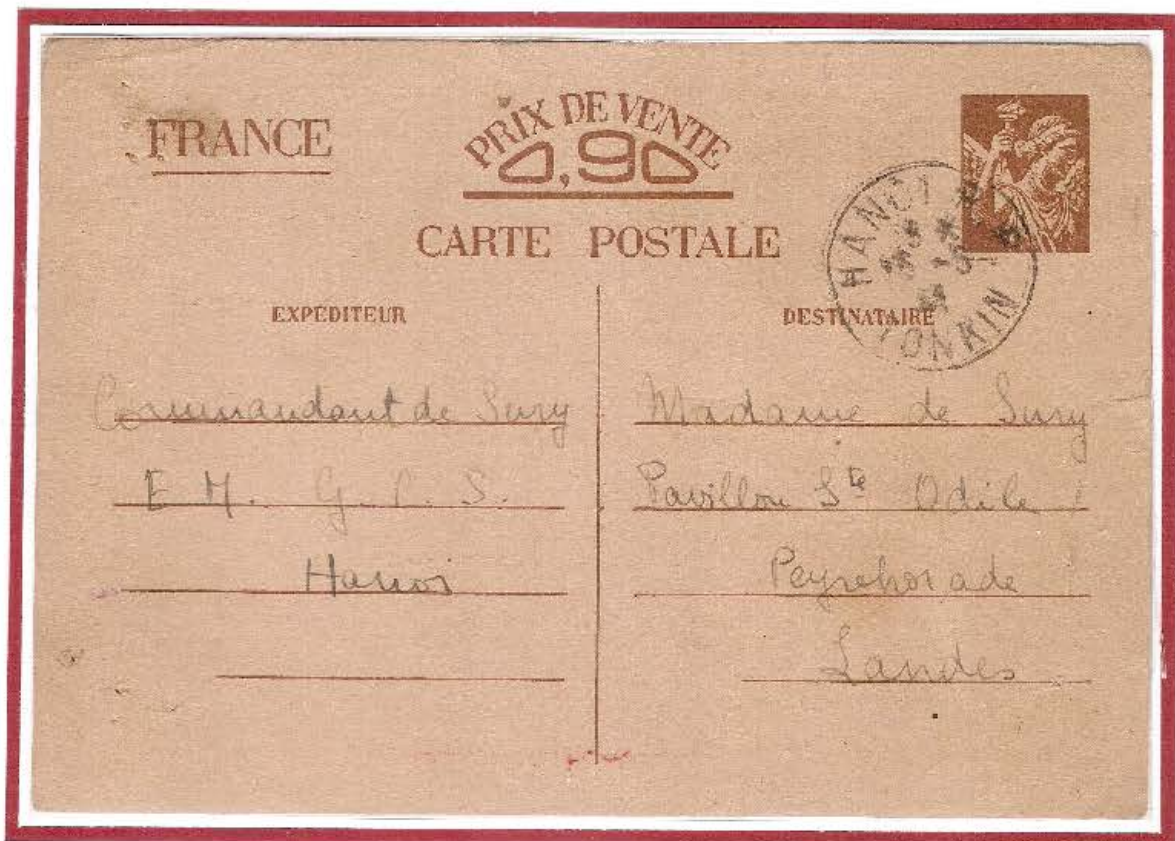 FRANCE
PRIX DE VENTE
0,90
CARTE POSTALE
HANOI
TONKIN
EXPÉDITEUR
Commandant de Sury
E M. G. P. S.
Hanoi
DESTINATAIRE
Madame de Sury
Pavillon Ste Odile
Peyrehorade
Landes